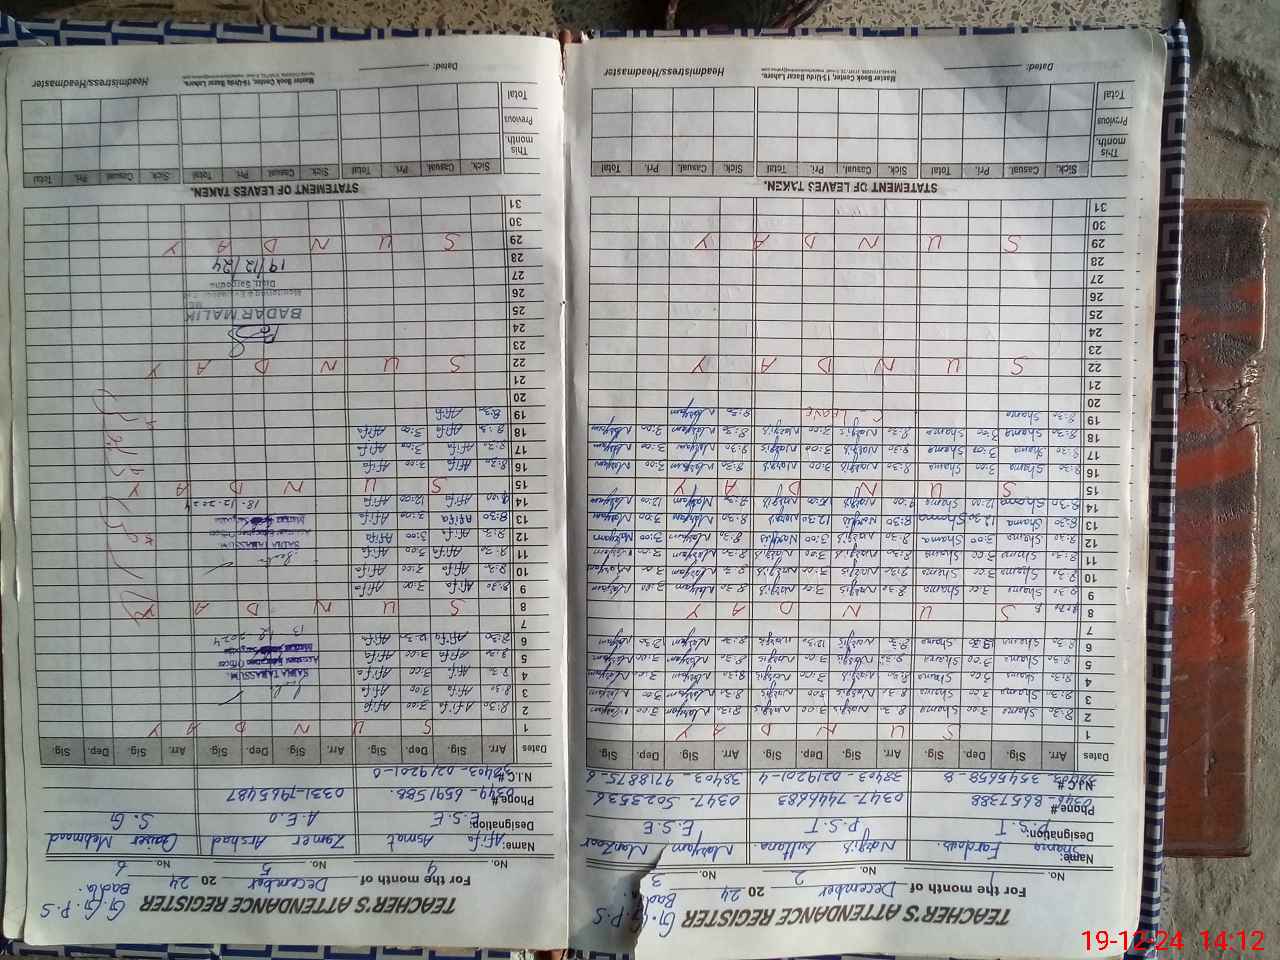 TEACHER'S ATTENDANCE REGISTER G.G.P.S
For the month of December 2024
No. 1 No. 2 No. 3
Name: Shama Fardous Nargis Sultana Maryam Manzoor
Designation: P.S.T P.S.T E.S.E
Phone # 0346-8657388 0347-7446683 0347-5023536
N.I.C # 38403-3545658-8 38403-0219201-4 38403-9218875-6
Dates Arr. Sig. Dep. Sig. Arr. Sig. Dep. Sig. Arr. Sig. Dep. Sig.
1 S U N D A Y
2 8:30 Shama 3:00 Shama 8:30 Nargis 3:00 Nargis 8:30 Maryam 3:00 Maryam
3 8:30 Shama 3:00 Shama 8:30 Nargis 3:00 Nargis 8:30 Maryam 3:00 Maryam
4 8:30 Shama 3:00 Shama 8:30 Nargis 3:00 Nargis 8:30 Maryam 3:00 Maryam
5 8:30 Shama 3:00 Shama 8:30 Nargis 3:00 Nargis 8:30 Maryam 3:00 Maryam
6 8:30 Shama Shama 8:30 Nargis 12:30 Nargis 8:30 Maryam 12:30 Maryam
7
8 S U N D A Y
9 8:30 Shama 3:00 Shama 8:30 Nargis 3:00 Nargis 8:30 Maryam 3:00 Maryam
10 8:30 Shama 3:00 Shama 8:30 Nargis 3:00 Nargis 8:30 Maryam 3:00 Maryam
11 8:30 Shama 3:00 Shama 8:30 Nargis 3:00 Nargis 8:30 Maryam 3:00 Maryam
12 8:30 Shama 3:00 Shama 8:30 Nargis 3:00 Nargis 8:30 Maryam 3:00 Maryam
13 8:30 Shama 12:30 Shama 8:30 Nargis 12:30 Nargis 8:30 Maryam 3:00 Maryam
14 8:30 Shama 12:00 Shama 9:00 Nargis Nargis 8:30 Maryam 12:00 Maryam
15 S U N D A Y
16 8:30 Shama 3:00 Shama 8:30 Nargis 3:00 Nargis 8:30 Maryam 3:00 Maryam
17 8:30 Shama 3:00 Shama 8:30 Nargis 3:00 Nargis 8:30 Maryam 3:00 Maryam
18 8:30 Shama 3:00 Shama 8:30 Nargis 3:00 Nargis 8:30 Maryam 3:00 Maryam
19 8:30 Shama LEAVE 8:30 Maryam
20
21
22 S U N D A Y
23
24
25
26
27
28
29 S U N D A Y
30
31
STATEMENT OF LEAVES TAKEN.
Sick. Casual. Pri. Total Sick. Casual. Pri. Total Sick. Casual. Pri. Total
This month.
Previous
Total
Dated: Master Book Center, 15-Urdu Bazar Lahore. Headmistress/Headmaster
TEACHER'S ATTENDANCE REGISTER G.G.P.S
For the month of December 2024
No. 4 No. 5 No. 6
Name: Afifa Asmat Zamer Arshad Qaiser Mehmood
Designation: E.S.E A.E.O S.G
Phone # 0344-6591588 0331-7965487
N.I.C # 38403-0219201-0
Dates Arr. Sig. Dep. Sig. Arr. Sig. Dep. Sig. Arr. Sig. Dep. Sig.
1 S U N D A Y
2 8:30 Afifa 3:00 Afifa
3 8:30 Afifa 3:00 Afifa
4 8:30 Afifa 3:00 Afifa SAIRA TABASSUM
5 8:30 Afifa 3:00 Afifa Assistant Education Officer
6 8:30 Afifa 12:30 Afifa
7
8 S U N D A Y
9 8:30 Afifa 3:00 Afifa
10 8:30 Afifa 3:00 Afifa
11 8:30 Afifa 3:00 Afifa
12 8:30 Afifa 3:00 Afifa SAIRA TABASSUM
13 8:30 Afifa 3:00 Afifa Assistant Education Officer
14 9:00 Afifa 12:00 Afifa 18-12-2024
15 S U N D A Y
16 8:30 Afifa 3:00 Afifa
17 8:30 Afifa 3:00 Afifa
18 8:30 Afifa 3:00 Afifa
19 8:30 Afifa
20
21
22 S U N D A Y
23
24
25 BADAR MALIK
26
27 Distt. Sargodha
28 19/12/24
29 S U N D A Y
30
31
STATEMENT OF LEAVES TAKEN.
Sick. Casual. Pri. Total Sick. Casual. Pri. Total Sick. Casual. Pri. Total
This month.
Previous
Total
Dated: Master Book Center, 15-Urdu Bazar Lahore. Headmistress/Headmaster
19-12-24 14:12